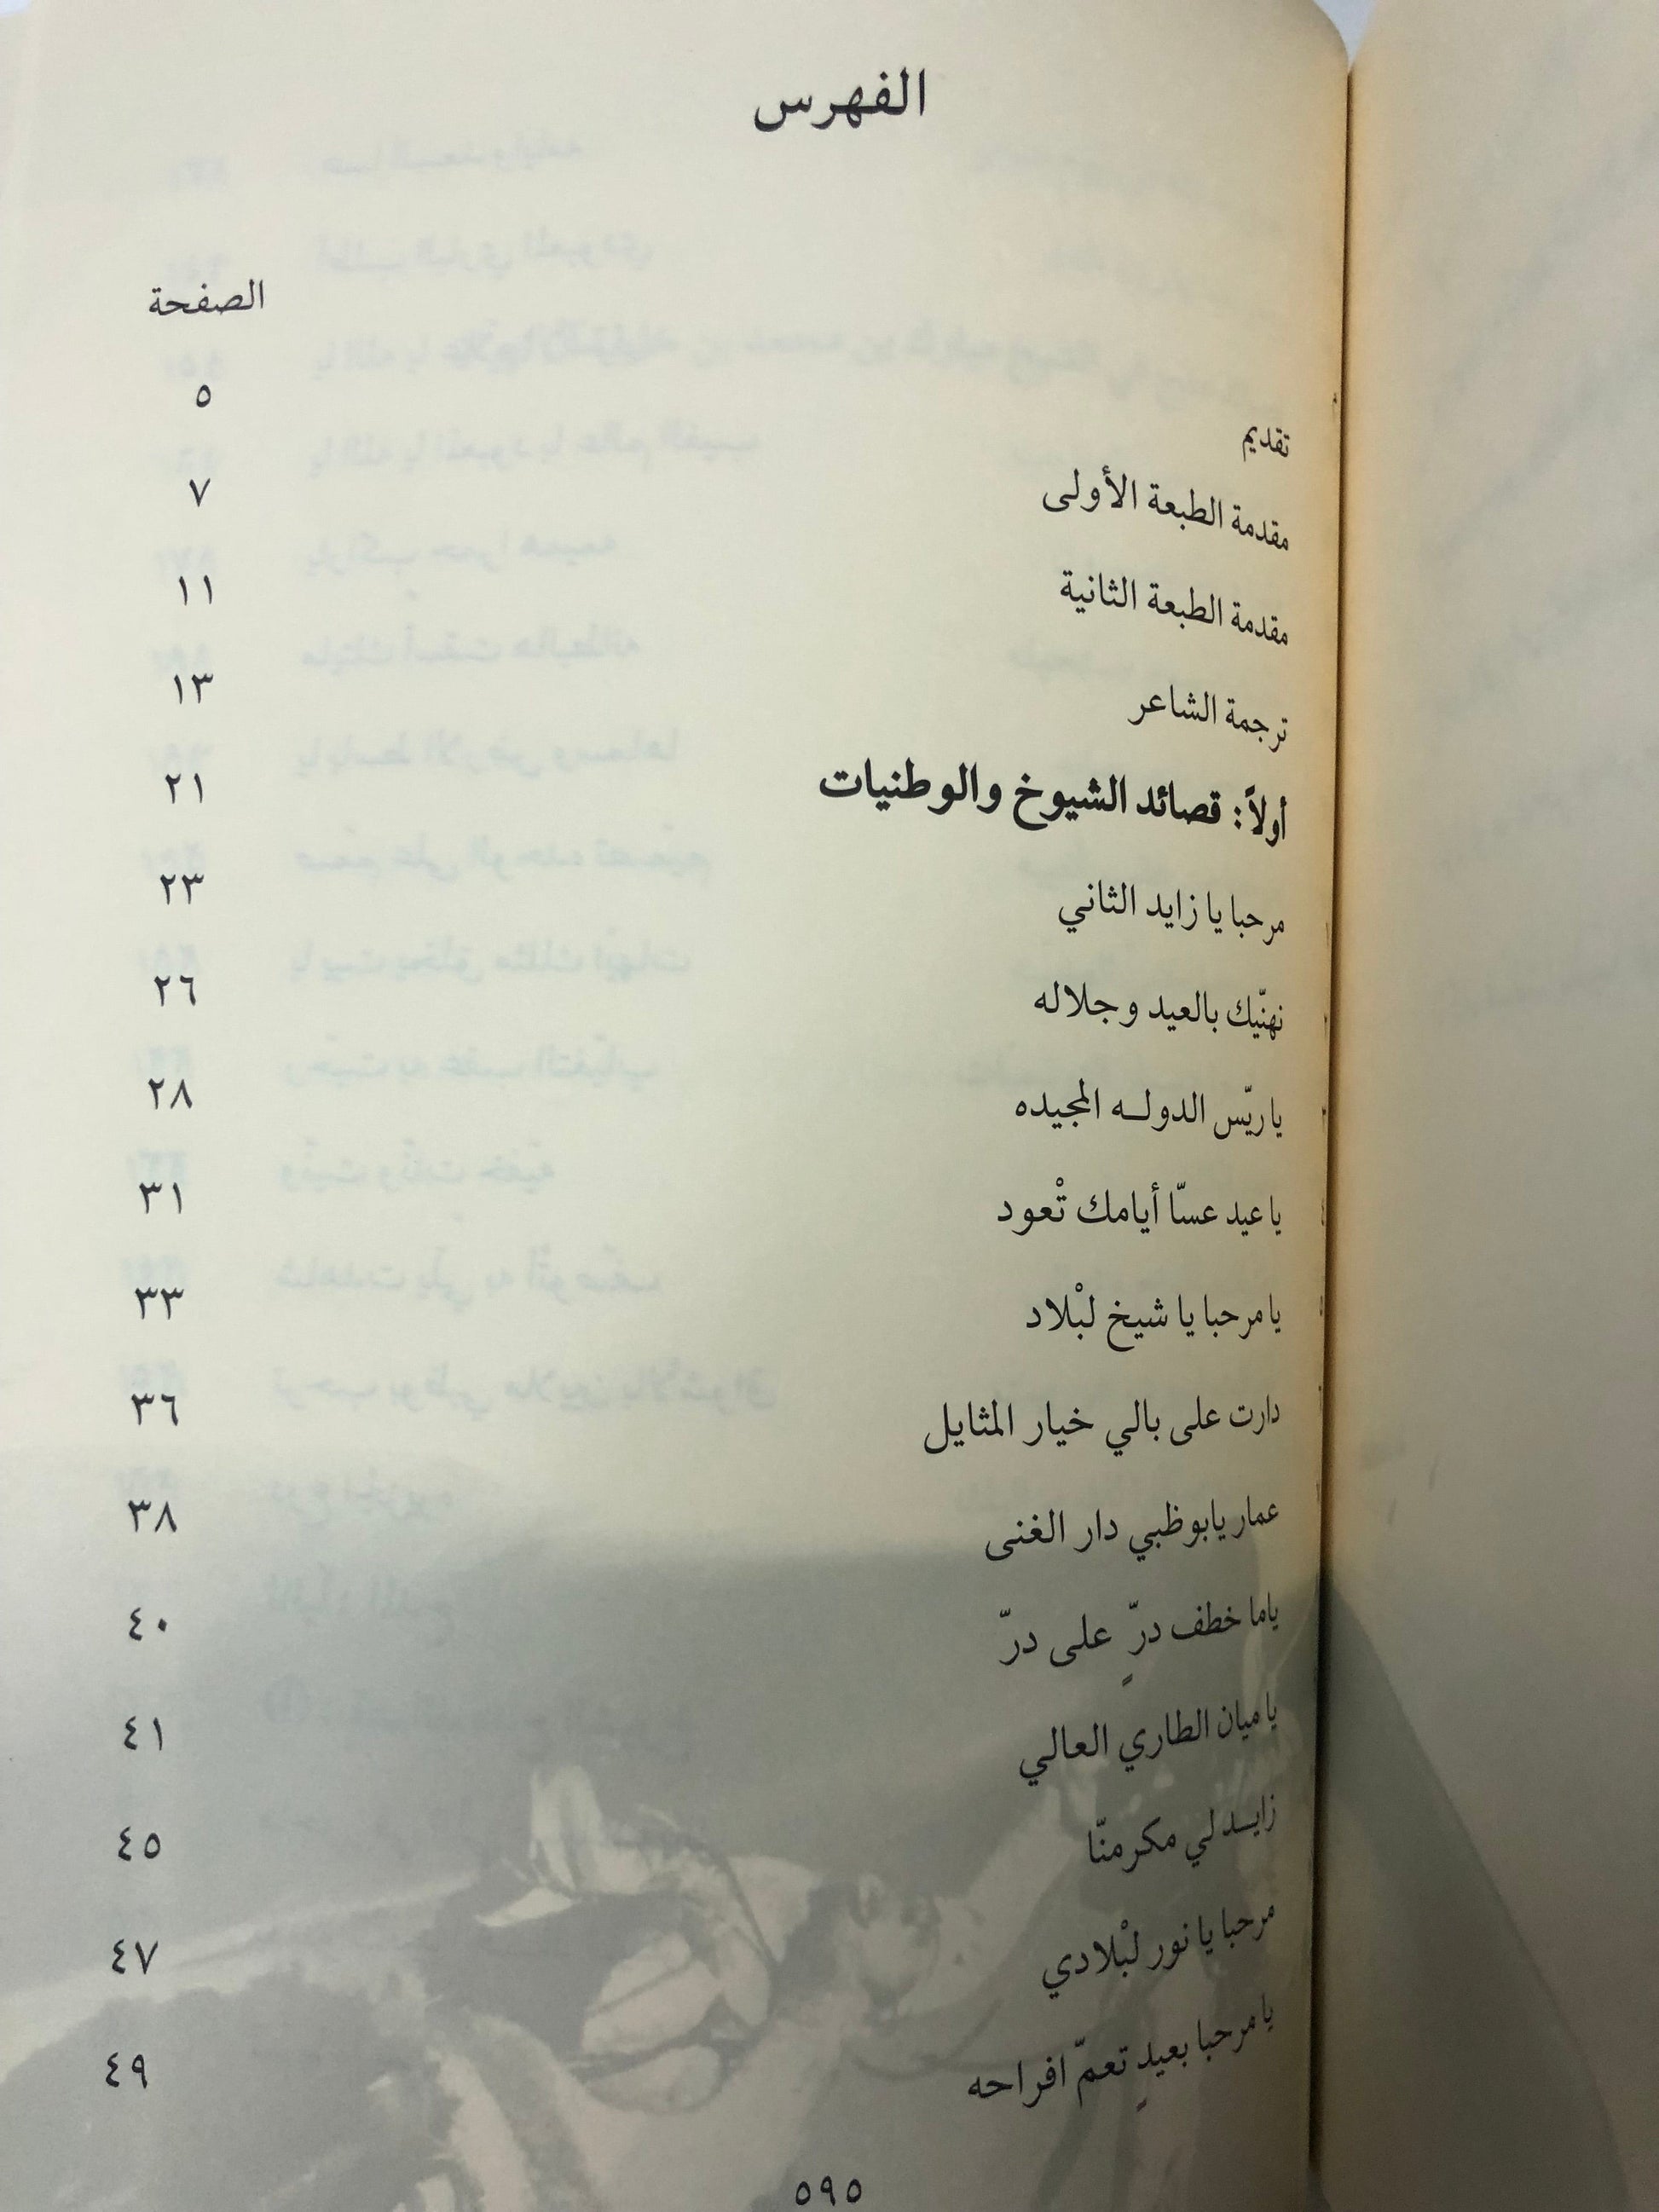 الفهرس
الصفحة
تقديم ٥
مقدمة الطبعة الأولى ٧
مقدمة الطبعة الثانية ١١
ترجمة الشاعر ١٣
أولاً: قصائد الشيوخ والوطنيات ٢١
مرحبا يا زايد الثاني ٢٣
نهنّيك بالعيد وجلاله ٢٦
يا ريّس الدولـه المجيده ٢٨
يا عيد عسّا أيامك تْعود ٣١
يا مرحبا يا شيخ لبْلاد ٣٣
دارت على بالي خيار المثايل ٣٦
عمار يابوظبي دار الغنى ٣٨
ياما خطف درّ على درّ ٤٠
يا ميان الطاري العالي ٤١
زايـد لي مكرمنّا ٤٥
مرحبا يا نور لبْلادي ٤٧
يا مرحبا بعيدٍ تعمّ افراحه ٤٩
٥٩٥